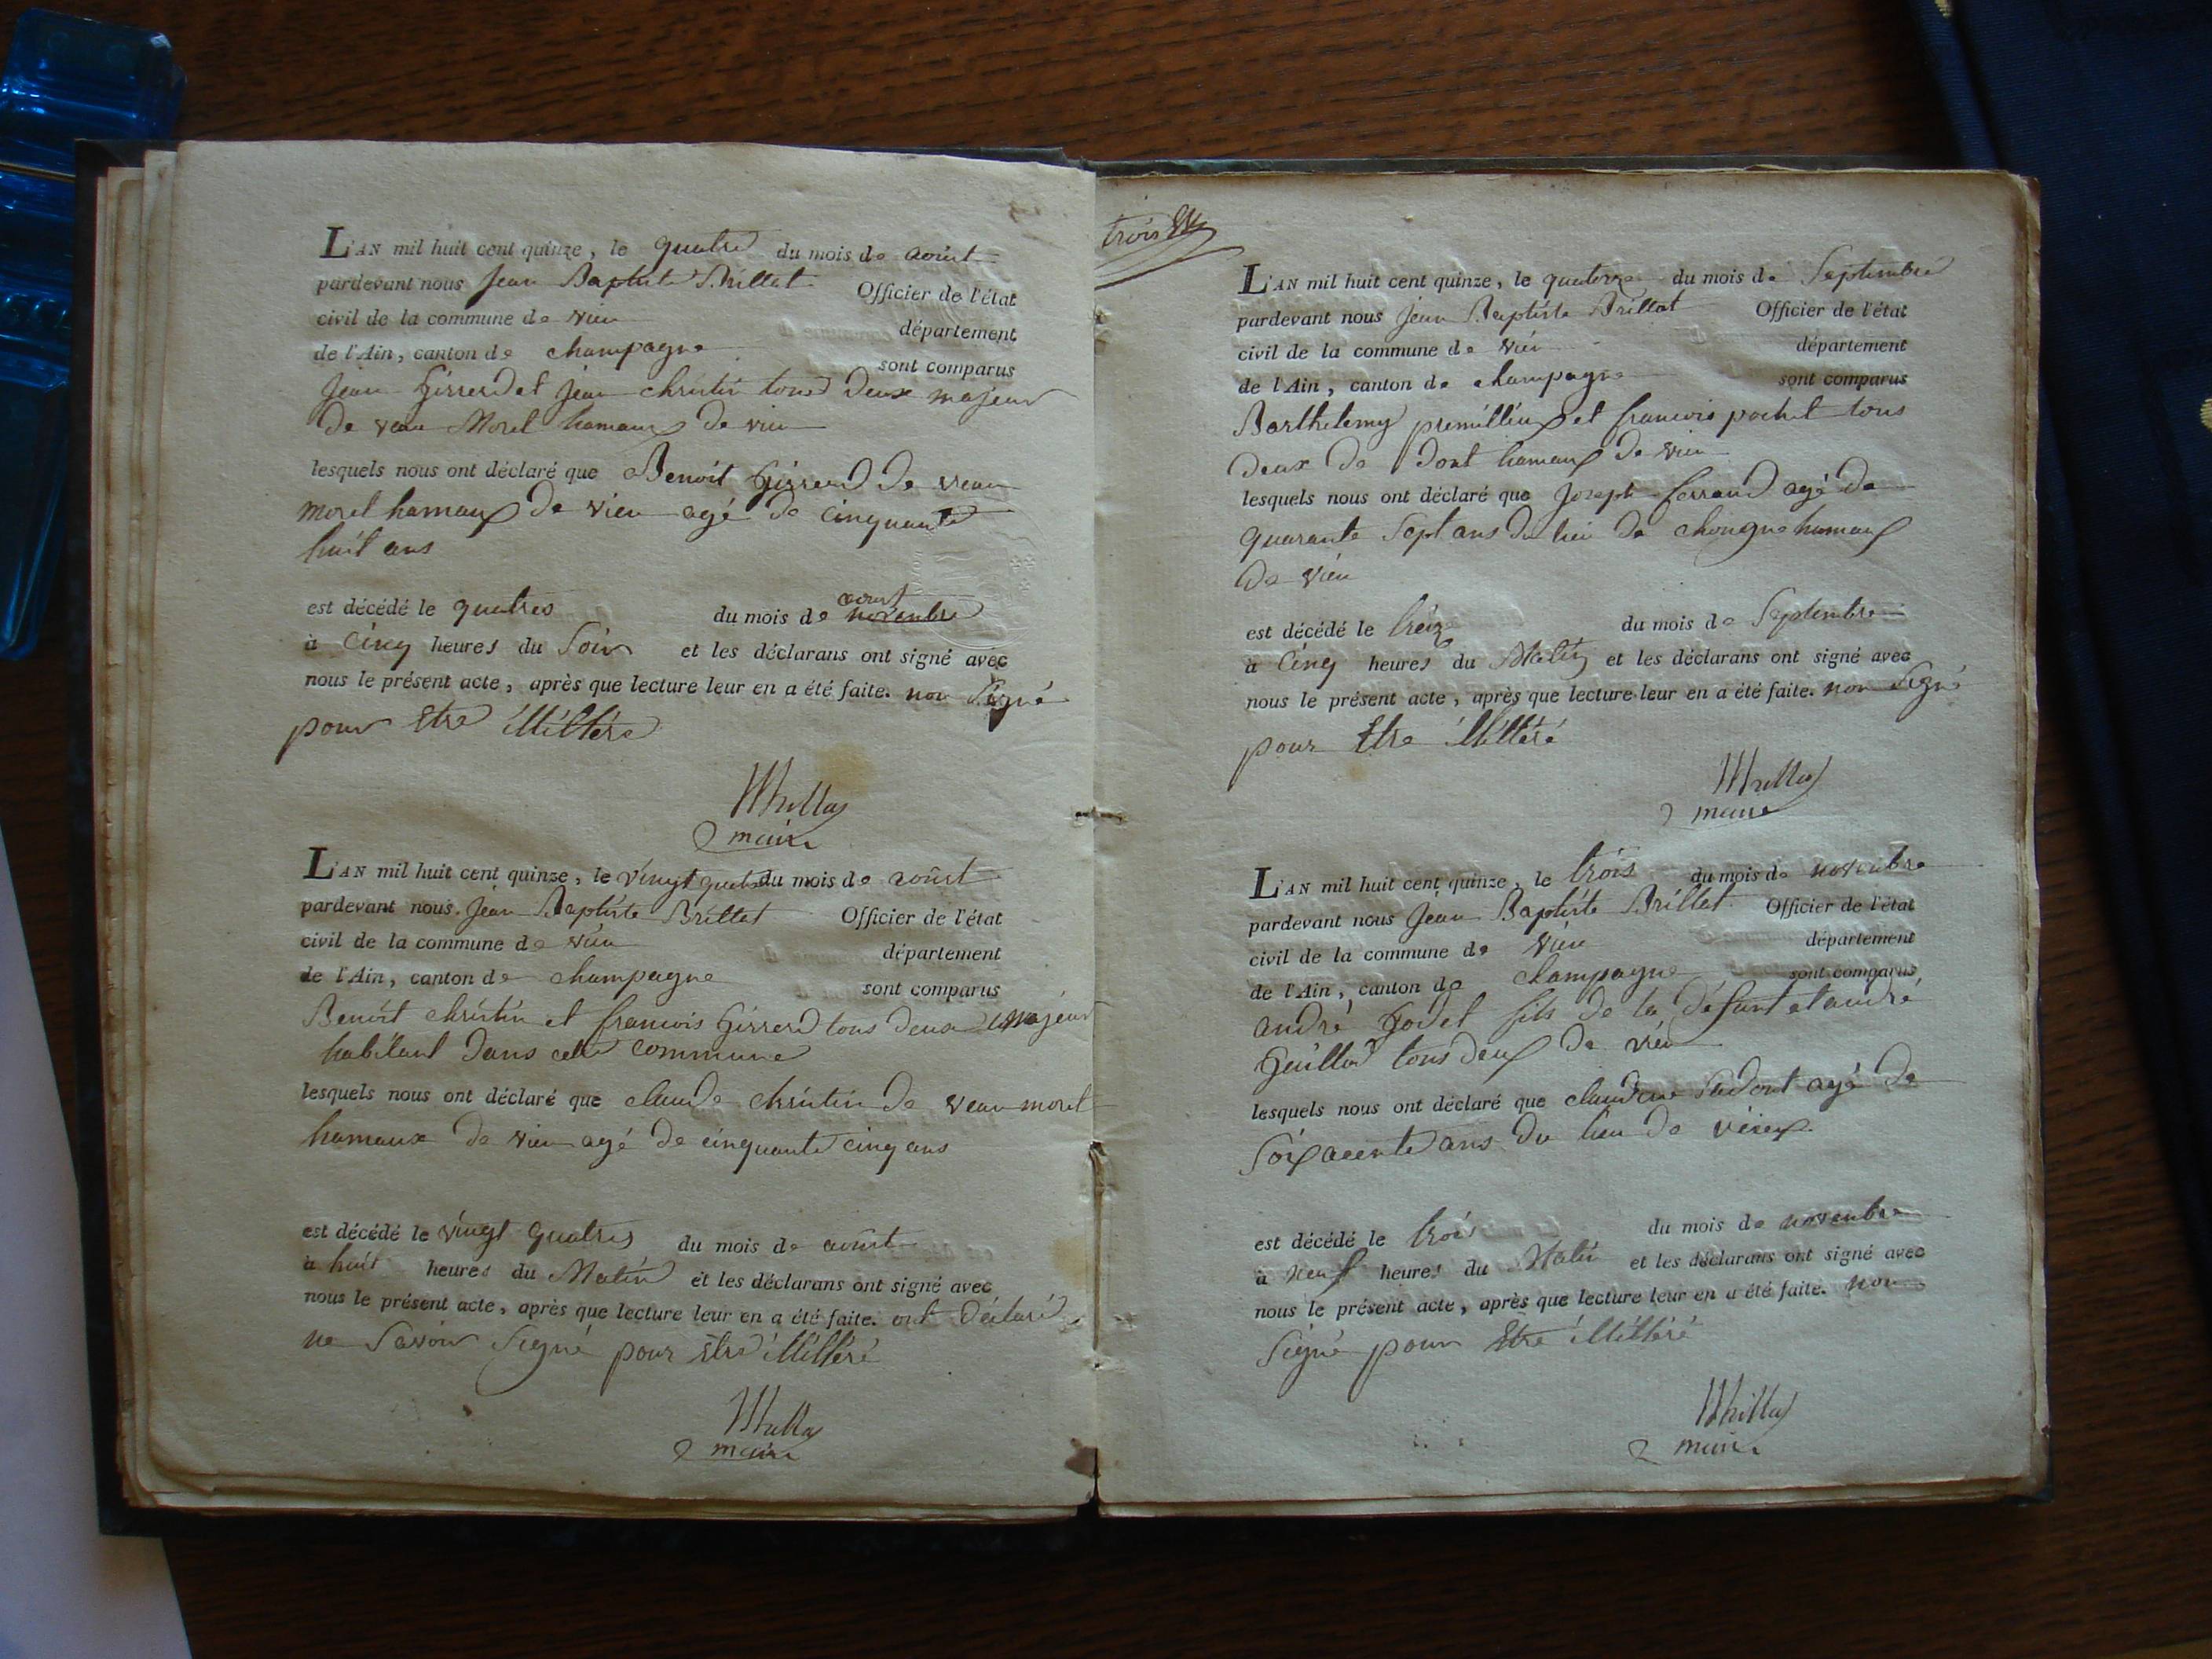 L'AN mil huit cent quinze, le quatre du mois de aoust
pardevant nous Jean Baptiste Brillat Officier de l'état
civil de la commune de vieu département
de l'Ain, canton de champagne sont comparus
Jean Girrerd et jean christin tous Deux majeur
De vaux Morel hamaux De vieu
lesquels nous ont déclaré que Benoit Girrerd De veau
morel hamaux De vieu agé de cinquante
huit ans
est décédé le quatres du mois de novembre aoust
à Cinq heures du Soir et les déclarans ont signé avec
nous le présent acte, après que lecture leur en a été faite. non Signé
pour Etre illiltéré
Brillat
maire
L'AN mil huit cent quinze, le vingt quatre du mois de aoûst
pardevant nous Jean Baptiste Brillat Officier de l'état
civil de la commune de vieu département
de l'Ain, canton de champagne sont comparus
Benoit christin et francois Girrerd tous deux majeur
habitant Dans cette commune
lesquels nous ont déclaré que claude christin De veau morel
hamaux De vieu agé de cinquante cinq ans
est décédé le vingt quatres du mois de aoust
à huit heures du Matin et les déclarans ont signé avec
nous le présent acte, après que lecture leur en a été faite. ont Déclaré
ne Savoir Signé pour Etre illiltéré
Brillat
maire
trois
L'AN mil huit cent quinze, le quatorze du mois de Septembre
pardevant nous Jean Baptiste Brillat Officier de l'état
civil de la commune de vieu département
de l'Ain, canton de champagne sont comparus
Barthelemy premillieux et francois pochet tous
Deux De Dont hamaux De vieu
lesquels nous ont déclaré que Joseph ferrand agé De
quarante Sept ans Du lieu De chongne hamaux
De vieu
est décédé le treize du mois de Septembre
à Cinq heures du Matin et les déclarans ont signé avec
nous le présent acte, après que lecture leur en a été faite. non Signé
pour Etre illiltéré
Brillat
maire
L'AN mil huit cent quinze, le trois du mois de novembre
pardevant nous Jean Baptiste Brillat Officier de l'état
civil de la commune de vieu département
de l'Ain, canton de champagne sont comparus
andré Godet fils De la Défunt et andré
Guillot tous Deux De vieu
lesquels nous ont déclaré que claudine agé De
Soixacente ans Du lieu De
est décédé le trois du mois de novembre
à neuf heures du Matin et les déclarans ont signé avec
nous le présent acte, après que lecture leur en a été faite. non
Signé pour Etre illiltéré
Brillat
maire